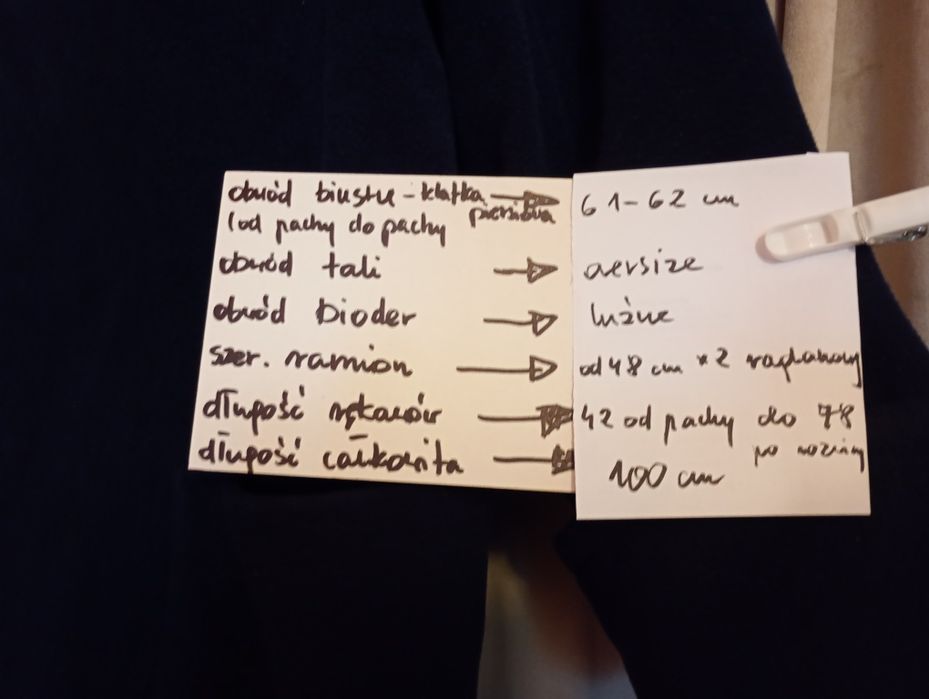 obwód biustu - klatka piersiowa → 61-62 cm
(od pachy do pachy
obwód tali → oversize
obwód bioder → luźne
szer. ramion → od 48 cm *2 raglanowy
długość rękawów → 42 od pachy do 78
długość całkowita → 100 cm